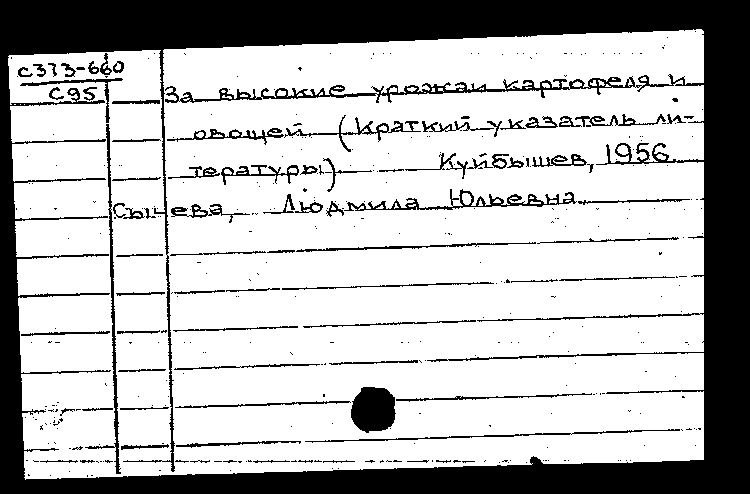 С373-660
С95
За высокие урожаи картофеля и
овощей (Краткий указатель ли-
тературы). Куйбышев, 1956.
Сычева, Людмила Юльевна.